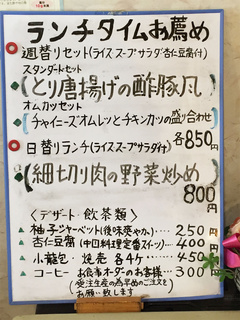 ランチタイムお薦め
週替りセット(ライス・スープ・サラダ・杏仁豆腐付)
スタンダードセット
とり唐揚げの酢豚風
オムカツセット
チャイニーズオムレツとチキンカツの盛り合わせ
各850円
日替りランチ(ライス・スープ・サラダ付)
細切り肉の野菜炒め
800円
〈デザート・飲茶類〉
▲柚子シャーベット(後味爽やか)…250円
▲杏仁豆腐(中国料理定番スイーツ)…400円
▲小籠包・焼売 各4ケ…450円
▲コーヒー お食事オーダーのお客様…300円
(受注生産の為早めのご注文を
お願い致します)